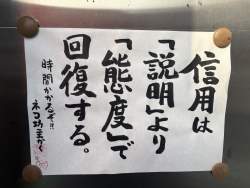 信用は
「説明」より
「態度」で
回復する。
時間かかるぞ!!
ネコ坊主が